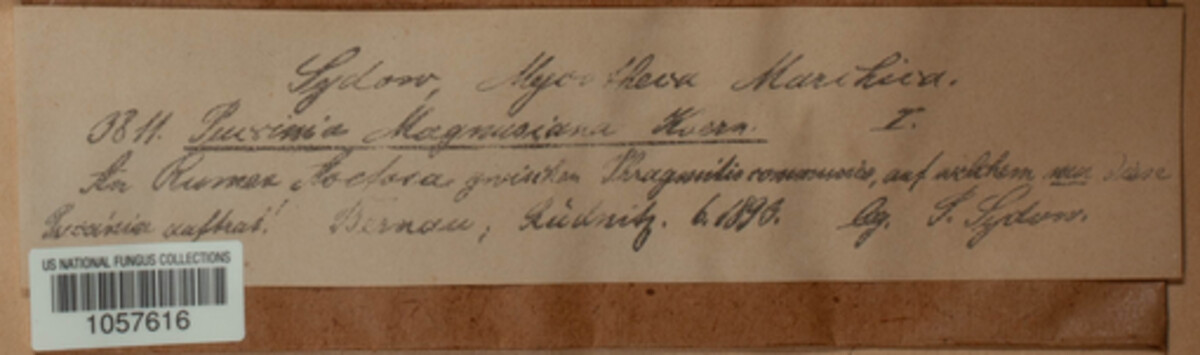 Sydow, Mycotheca Marchica.
3811. Puccinia Magnusiana Koern. I.
An Rumex Acetosa zwischen Phragmitis communis, auf welchem nur diese
Puccinia auftrat! Bernau, Rüdnitz. 6.1893. lg. P. Sydow.
US NATIONAL FUNGUS COLLECTIONS
1057616